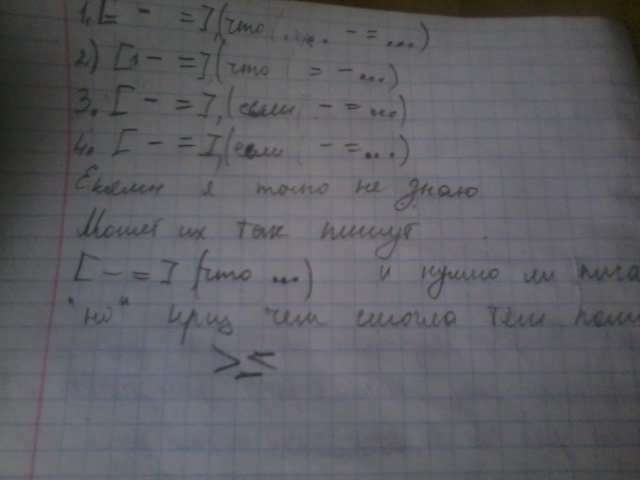 1. [ - = ], (что ... - = ...)
2) [1 - = ], (что = - ...)
3. [ - = ], (если - = ...)
4. [ - = ], (если - = ...)
я точно не знаю
Может их так пишут
[ - = ] (что ...) и нужно ли писа
"но" чем смогла тем помо
> ≤